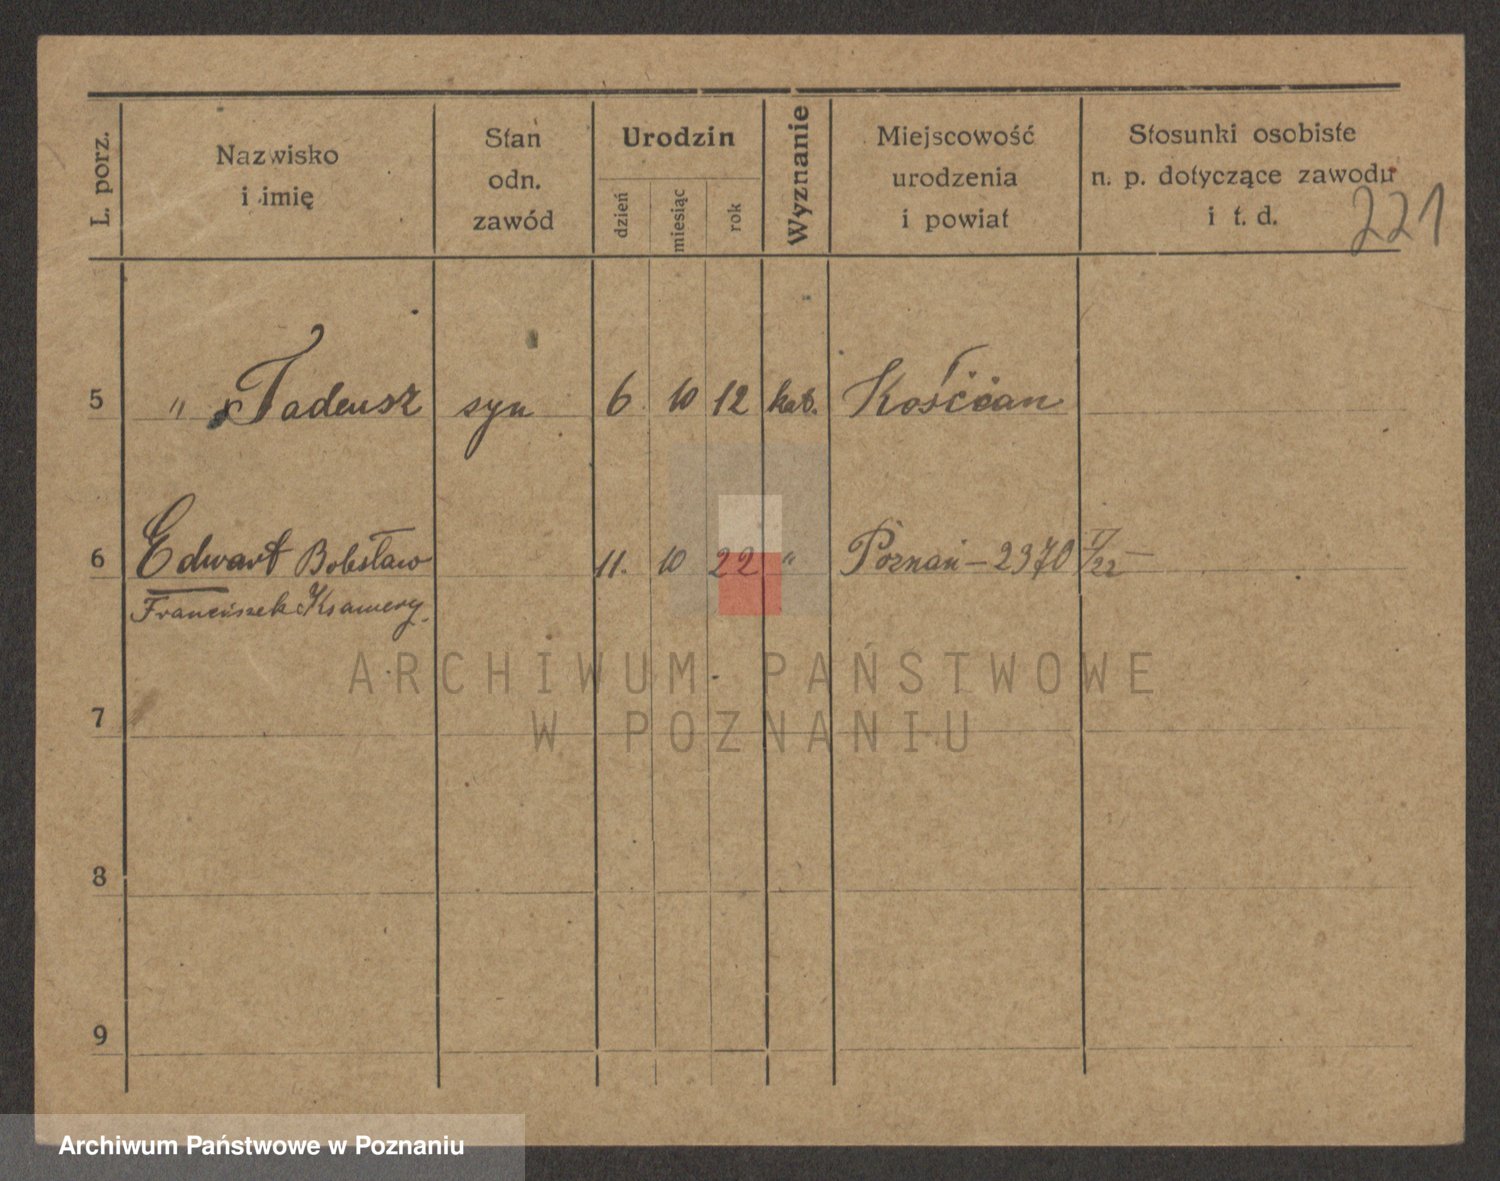 L. porz.
Nazwisko
i imię
Stan
odn.
zawód
Urodzin
dzień
miesiąc
rok
Wyznanie
Miejscowość
urodzenia
i powiat
Stosunki osobiste
n. p. dotyczące zawodu
i t. d.
221
5 " Tadeusz syn 6 10 12 kat. Kościan
6 Edwart Bolesław 11. 10 22 " Poznań – 2370 V/22 –
Franciszek Ksawery.
7
8
9
ARCHIWUM PAŃSTWOWE
W POZNANIU
Archiwum Państwowe w Poznaniu